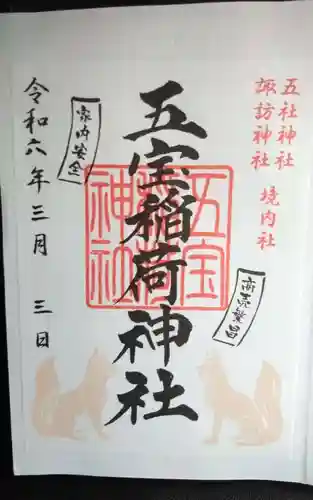 五社神社
諏訪神社 境内社
商売繁昌
五宝稲荷神社
五宝稲荷神社
家内安全
令和六年三月 三日